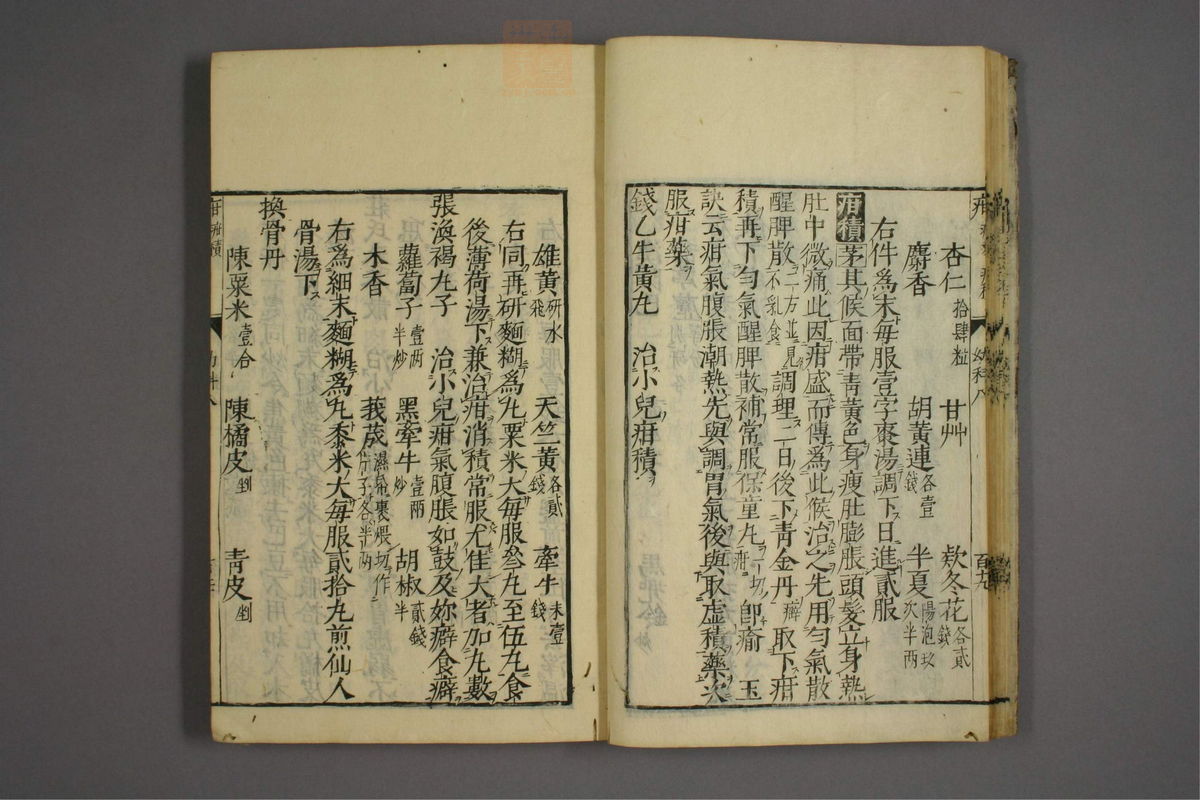 杏仁 拾肆粒 甘艸 欵冬花 各貳錢
麝香 胡黃連 各壹錢 半夏 湯泡玖次半两
右件爲末毎服壹字棗湯調下日進貳服
疳積 茅其候面帶靑黃色身瘦肚膨脹頭髮立身熱
肚中微痛此因疳盛而傳爲此候治之先用勻氣散
醒脾散 不乳食二方並見 調理一日後下靑金丹 癖 取下疳
積再下勻氣醒脾散補常服保童丸 一切疳 卽瘉 玉
訣云疳氣腹脹潮熱先與調胃氣後與取虛積藥次
服疳藥
錢乙牛黃丸 治小兒疳積
雄黃 研水飛 天竺黃 各貳錢 牽牛 末壹錢
右同再研麵糊爲丸粟米大毎服叄丸至伍丸食
後薄荷湯下兼治疳消積常服尤佳大者加丸數
張渙褐丸子 治小兒疳氣腹脹如鼓及妳癖食癖
蘿蔔子 壹两半炒 黑牽牛 壹两炒 胡椒 貳錢半
木香 莪茂 濕帋裹煨切作片子各半两
右爲細末麵糊爲丸黍米大毎服貳拾丸煎仙人
骨湯下
換骨丹
陳粟米 壹合 陳橘皮 剉 靑皮 剉